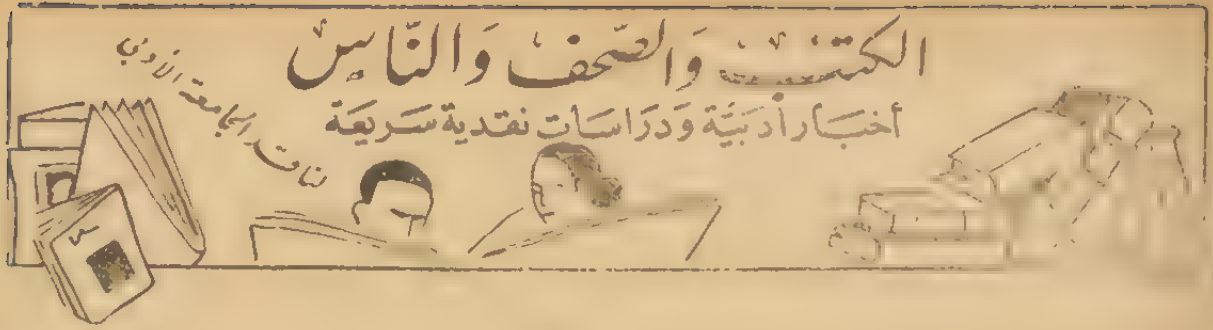 الكتب وَالصّحف وَالنّاس
أخبَار أدبيَّة وَدرَاسَات نقدية سَريعَة
لناقد الجامعة الأدبي